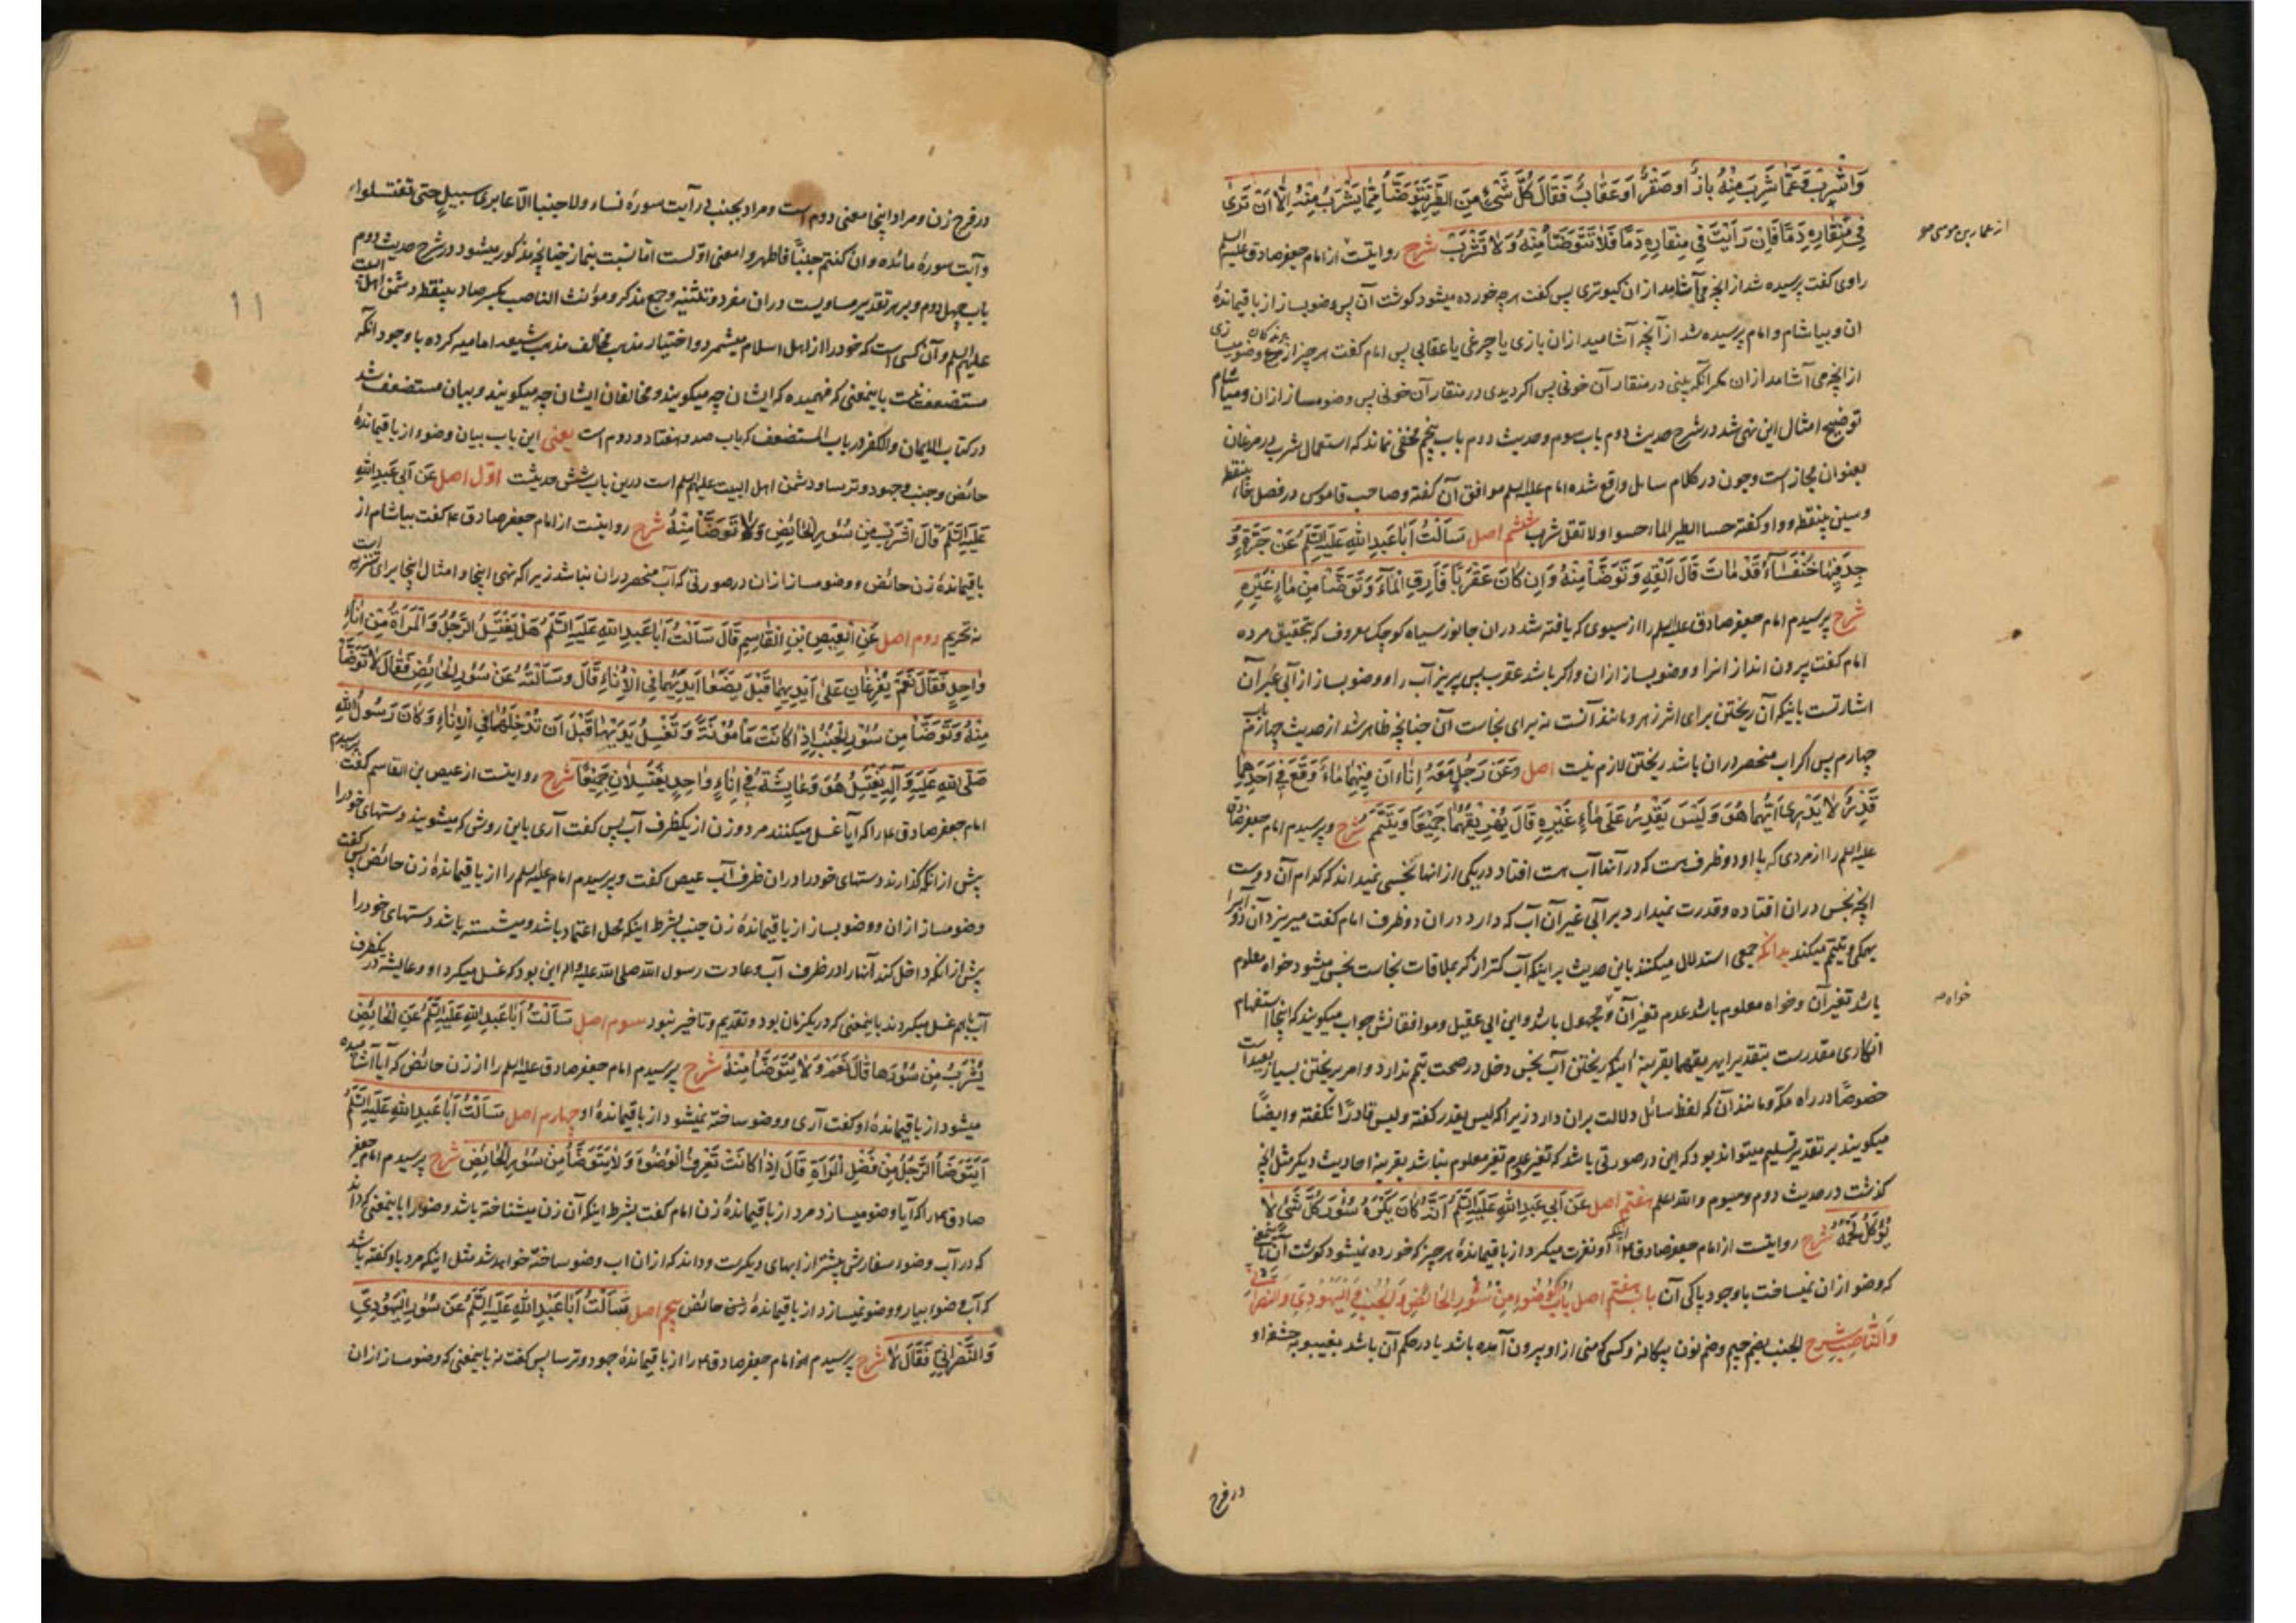 وَاشْرِبْ وَعَمَّا شَرِبَ مِنْهُ بَازٌ أَوْ صَقْرٌ أَوْ عُقَابٌ فَقَالَ كُلُّ شَيْءٍ مِنَ الطَّيْرِ يُتَوَضَّأُ مِمَّا يَشْرَبُ مِنْهُ إِلَّا أَنْ تَرَى
فِي مِنْقَارِهِ دَمًا فَإِنْ رَأَيْتَ فِي مِنْقَارِهِ دَمًا فَلَا تَتَوَضَّأْ مِنْهُ وَلَا تَشْرَبْ شرح روایتست از امام جعفر صادق علیه السلم
از عمار بن موسی
راوی گفت پرسیده شد از انچه می آشامد ازان کبوتری پس گفت هرچه خورده میشود کوشت آن پس وضو بساز از باقیماندهٔ
ان و بیاشام و امام پرسیده شد از آنچه آشامید ازان بازی یا چرغی یا عقابی پس امام گفت هر چیز از مرغ وضو میسازی
از انچه می آشامد ازان مکر آنکه بینی در منقار آن خونی پس اکر دیدی در منقار آن خونی پس وضو مساز ازان و میاشام
توضیح امثال این نهی شد در شرح حدیث دوم باب سوم و حدیث دوم باب پنجم مخفی نماند که استعمال شرب در مرغان
بعنوان مجاز است و چون در کلام سایل واقع شده امام علیه السلم موافق آن گفته و صاحب قاموس در فصل حاء بینقطه
و سین بینقطه و واو گفته حسا الطیر الماء حسوا ولا تقل شرب ششم اصل سَأَلْتُ أَبَا عَبْدِ اللهِ عَلَيْهِ السَّلَمُ عَنْ جَرَّةٍ وُ
جِدَ فِيهَا خُنْفَسَاءُ قَدْ مَاتَ قَالَ أَلْقِهِ وَتَوَضَّأْ مِنْهُ وَإِنْ كَانَ عَقْرَبًا فَأَرِقِ الْمَاءَ وَتَوَضَّأْ مِنْ مَاءٍ غَيْرِهِ
شرح پرسیدم امام جعفر صادق علیه السلم را از سبوی که یافته شد دران جانور سیاه کوچک معروف که بتحقیق مرده
امام گفت بیرون انداز انرا و وضو بساز ازان و اکر باشد عقرب پس بریز آب را و وضو بساز از آبی غیر آن
اشارتست باینکه آن ریختن برای اثر زهر و مانند آنست نه برای نجاست آن چنانچه ظاهر شد از حدیث چهارم باب
چهارم پس اکر اب منحصر دران باشد ریختن لازم نیست اصل وَعَنْ رَجُلٍ مَعَهُ إِنَاءَانِ فِيهِمَا مَاءٌ وَقَعَ فِي أَحَدِهِمَا
قَذَرٌ لَا يَدْرِي أَيُّهُمَا هُوَ وَلَيْسَ يَقْدِرُ عَلَى مَاءٍ غَيْرِهِ قَالَ يُهَرِيقُهُمَا جَمِيعًا وَيَتَيَمَّمُ شرح و پرسیدم امام جعفر صادق
علیه السلم را از مردی که با او دو ظرف هست که در آنها آب هست افتاد در یکی از انها نجسی نمیداند که کدام آن دوست
انچه نجس دران افتاده و قدرت نمیدارد بر آبی غیر آن آب که دارد دران دو ظرف امام گفت میریزد آن دو آب را
همکی و تیمم میکند بدانکه جمعی استدلال میکنند باین حدیث بر اینکه آب کمتر از کر بملاقات نجاست نجس میشود خواه معلوم
باشد تغیر آن و خواه معلوم باشد عدم تغیر آن و مجهول باشد و ابن ابی عقیل و موافقانش جواب میکویند که اینجا استفهام
خواه
انکاری مقدرست بتقدیر ایهریقهما بقرینهٔ اینکه ریختن آب نجس دخل در صحت تیمم ندارد و امر بریختن بسیار بعید است
خصوصًا در راه مکه و مانند آن که لفظ سائل دلالت بران دارد زیرا که لیس یقدر گفته و لیس قادرًا نگفته و ایضًا
میکویند بر تقدیر تسلیم میتواند بود که این در صورتی باشد که تغیر و عدم تغیر معلوم نباشد بقرینهٔ احادیث دیکر مثل انچه
کذشت در حدیث دوم و سیوم والله اعلم هفتم اصل عَنْ أَبِي عَبْدِ اللهِ عَلَيْهِ السَّلَمُ أَنَّهُ كَانَ يَكْرَهُ سُؤْرَ كُلِّ شَيْءٍ لَا
يُؤْكَلُ لَحْمُهُ شرح روایتست از امام جعفر صادق ع اینکه او نفرت میکرد از باقیماندهٔ هر چیز که خورده نمیشود کوشت آن
که وضو ازان نمیساخت با وجود پاکی آن باب هفتم اصل بَابُ الْوُضُوءِ مِنْ سُؤْرِ الْحَائِضِ وَالْجُنُبِ وَالْيَهُودِيِّ وَالنَّصْرَانِيِّ
وَالنَّاصِبِ شرح الجنب بضم جیم و ضم نون بیکانه و کسی که منی از او بیرون آمده باشد یا در حکم آن باشد بغیبوبهٔ حشفهٔ او
در فرج
در فرج زن و مراد اینجا معنی دوم است و مراد بجنب در آیت سورهٔ نساء ولا جنبا الّا عابری سبیل حتی تغتسلوا
و آیت سورهٔ مائده وان کنتم جنبًا فاطهروا معنی اوّلست اما نسبت بنماز چنانچه مذکور میشود در شرح حدیث دوم
باب چهل دوم و بر هر تقدیر مساویست دران مفرد و تثنیه و جمع مذکر و مؤنث الناصب بکسر صاد بینقطه دشمن اهل البیت
علیهم السلم و آن کسی است که خود را از اهل اسلام میشمرد و اختیار مذهب مخالف مذهب شیعهٔ امامیه کرده با وجود آنکه
مستضعف نیست باینمعنی که فهمیده که ایشان چه میکویند و مخالفان ایشان چه میکویند و بیان مستضعف شد
در کتاب الایمان والکفر در باب المستضعف که باب صد و هفتاد و دوم است یعنی این باب بیان وضوء از باقیماندهٔ
حائض و جنب و جهود و ترسا و دشمن اهل البیت علیهم السلم است درین باب شش حدیثست اوّل اصل عَنْ أَبِي عَبْدِ اللهِ
عَلَيْهِ السَّلَمُ قَالَ اشْرَبْ مِنْ سُؤْرِ الْحَائِضِ وَلَا تَوَضَّأْ مِنْهُ شرح روایتست از امام جعفر صادق ع گفت بیاشام از
باقیماندهٔ زن حائض و وضو مساز ازان در صورتی که آب منحصر دران نباشد زیرا که نهی اینجا و امثال اینجا برای تنزیه است
نه تحریم دوم اصل عَنِ الْعِيصِ بْنِ الْقَاسِمِ قَالَ سَأَلْتُ أَبَا عَبْدِ اللهِ عَلَيْهِ السَّلَمُ هَلْ يَغْتَسِلُ الرَّجُلُ وَالْمَرْأَةُ مِنْ إِنَاءٍ
وَاحِدٍ فَقَالَ نَعَمْ يُفْرِغَانِ عَلَى أَيْدِيهِمَا قَبْلَ يَضَعَا أَيْدِيَهُمَا فِي الْإِنَاءِ قَالَ وَسَأَلْتُهُ عَنْ سُؤْرِ الْحَائِضِ فَقَالَ لَا تَوَضَّأْ
مِنْهُ وَتَوَضَّأْ مِنْ سُؤْرِ الْجُنُبِ إِذَا كَانَتْ مَأْمُونَةً وَتَغْسِلُ يَدَيْهَا قَبْلَ أَنْ تُدْخِلَهُمَا فِي الْإِنَاءِ وَكَانَ رَسُولُ اللهِ
صَلَّى اللهُ عَلَيْهِ وَآلِهِ يَغْتَسِلُ هُوَ وَعَايِشَةُ فِي إِنَاءٍ وَاحِدٍ يَغْتَسِلَانِ جَمِيعًا شرح روایتست از عیص بن القاسم گفت پرسیدم
امام جعفر صادق ع را که آیا غسل میکنند مرد و زن از یکظرف آب پس گفت آری باین روش که میشویند دستهای خود را
پیش از انکه گذارند دستهای خود را دران ظرف آب عیص گفت و پرسیدم امام علیه السلم را از باقیماندهٔ زن حائض پس گفت
وضو مساز ازان و وضو بساز از باقیماندهٔ زن جنب بشرط اینکه محل اعتماد باشد و میشسته باشد دستهای خود را
پیش از انکه داخل کند آنها را در ظرف آب و عادت رسول الله صلی الله علیه واله این بود که غسل میکرد او و عایشه در یکظرف
آب باهم غسل میکردند باینمعنی که در یکزمان بود و تقدیم و تاخیر نبود سوم اصل سَأَلْتُ أَبَا عَبْدِ اللهِ عَلَيْهِ السَّلَمُ عَنِ الْحَائِضِ
يُشْرَبُ مِنْ سُؤْرِهَا قَالَ نَعَمْ وَلَا يُتَوَضَّأُ مِنْهُ شرح پرسیدم امام جعفر صادق علیه السلم را از زن حائض که آیا آشامیده
میشود از باقیماندهٔ او گفت آری و وضو ساخته نمیشود از باقیماندهٔ او چهارم اصل سَأَلْتُ أَبَا عَبْدِ اللهِ عَلَيْهِ السَّلَمُ
أَيَتَوَضَّأُ الرَّجُلُ مِنْ فَضْلِ الْمَرْأَةِ قَالَ إِذَا كَانَتْ تَعْرِفُ الْوُضُوءَ وَلَا يَتَوَضَّأُ مِنْ سُؤْرِ الْحَائِضِ شرح پرسیدم امام جعفر
صادق ع را که آیا وضو میسازد مرد از باقیماندهٔ زن امام گفت بشرط اینکه آن زن میشناخته باشد وضو را باینمعنی که داند
که در آب وضوء سفارش بیشتر از ابهای دیکرست و داند که ازان اب وضو ساخته خواهد شد مثل اینکه مرد باو گفته باشد
که آب وضو بیار و وضو نمیسازد از باقیماندهٔ زن حائض پنجم اصل سَأَلْتُ أَبَا عَبْدِ اللهِ عَلَيْهِ السَّلَمُ عَنْ سُؤْرِ الْيَهُودِيِّ
وَالنَّصْرَانِيِّ فَقَالَ لَا شرح پرسیدم امام جعفر صادق ع را از باقیماندهٔ جهود و ترسا پس گفت نه باینمعنی که وضو مساز ازان
۱۱